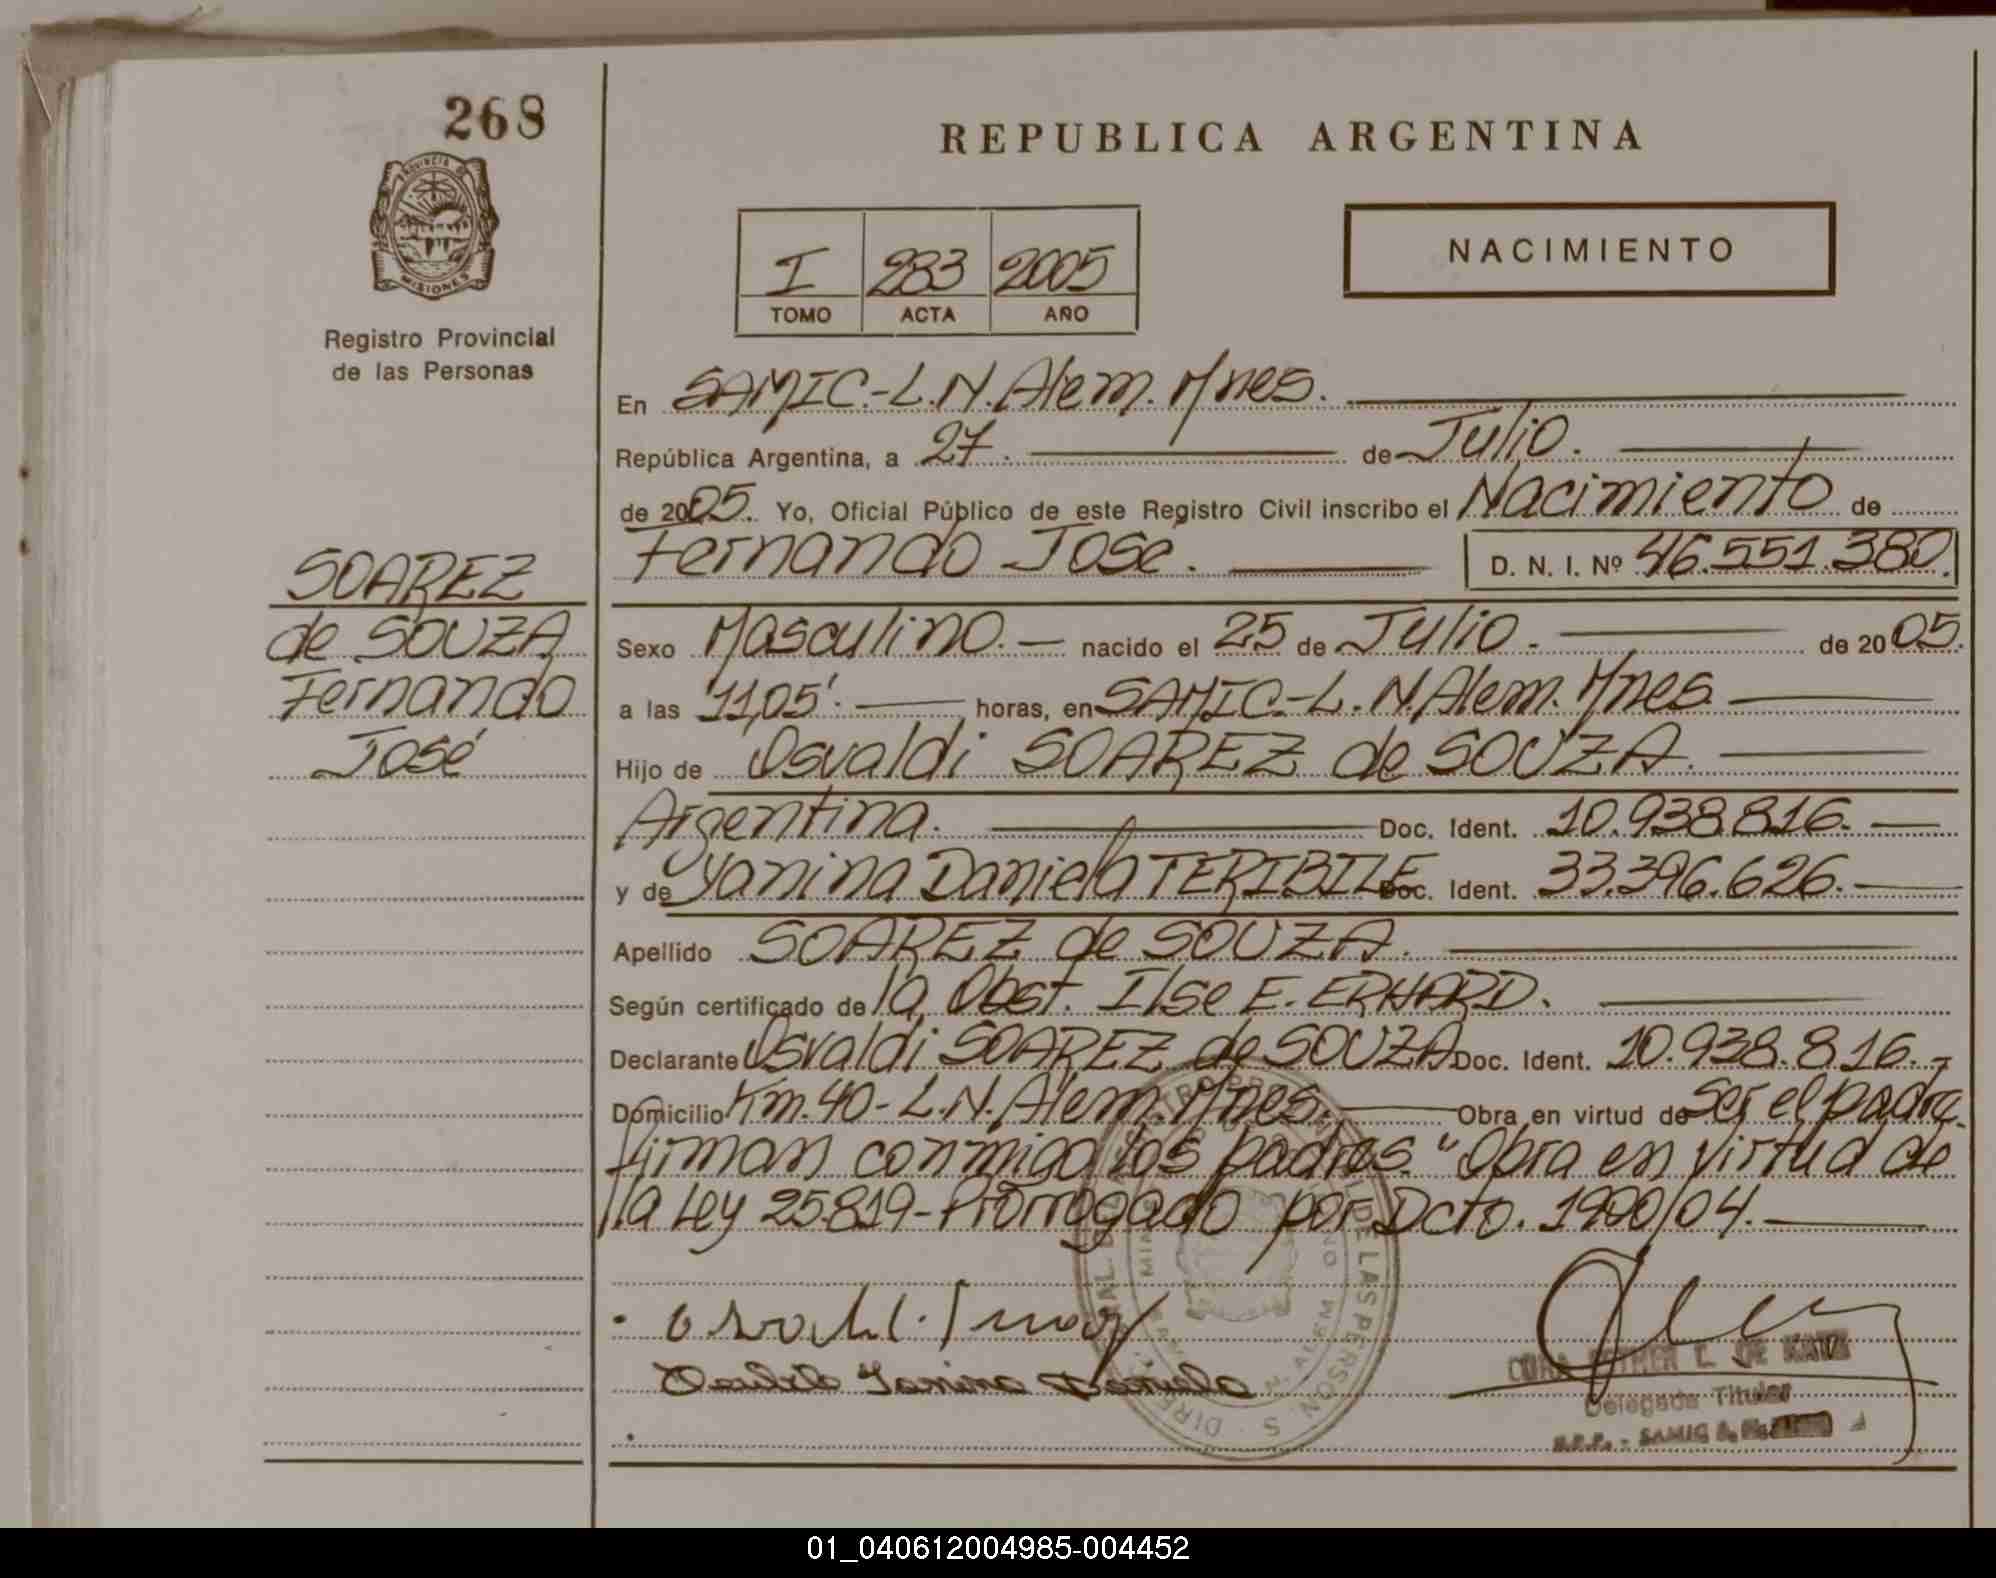 268
PROVINCIA DE
MISIONES
Registro Provincial
de las Personas
SOAREZ
de SOUZA
Fernando
José
REPUBLICA ARGENTINA
I 283 2005
TOMO ACTA AÑO
NACIMIENTO
En SAMIC.-L.N.Alem.Mnes.
República Argentina, a 27. de Julio.
de 2005. Yo, Oficial Público de este Registro Civil inscribo el Nacimiento de
Fernando José. D. N. I. Nº 46.551.380.
Sexo Masculino. nacido el 25 de Julio. de 2005.
a las 11,05'. horas, en SAMIC.-L.N.Alem.Mnes.
Hijo de Osvaldi SOAREZ de SOUZA.
Argentina. Doc. Ident. 10.938.816.
y de Yanina Daniela TERIBILE Doc. Ident. 33.396.626.
Apellido SOAREZ de SOUZA.
Según certificado de la Obst. Ilse E. ERHARD.
Declarante Osvaldi SOAREZ de SOUZA Doc. Ident. 10.938.816.-
Domicilio Km.40-L.N.Alem.Mnes. Obra en virtud de ser el padre.
firman conmigo los padres. "Obra en virtud de
la Ley 25.819-Prorrogado por Dcto. 1900/04.
Yanina Daniela
DE LAS PERSONAS
Delegada Titular
01_040612004985-004452